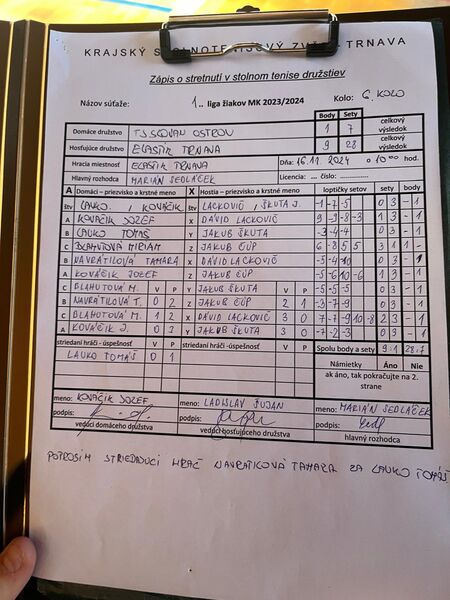 KRAJSKÝ STOLNOTENISOVÝ ZVÄZ - TRNAVA
Zápis o stretnutí v stolnom tenise družstiev
Názov súťaže: 1.. liga žiakov MK 2023/2024 Kolo: 6. KOLO
Body Sety
Domáce družstvo TJ SLOVAN OSTROV 1 7 celkový výsledok
Hosťujúce družstvo ELASTIK TRNAVA 9 28 celkový výsledok
Hracia miestnosť ELASTIK TRNAVA Dňa: 16.11 2024 o 10 00 hod.
Hlavný rozhodca MARIÁN SEDLÁČEK Licencia: ... číslo:
A Domáci - priezvisko a krstné meno X Hostia - priezvisko a krstné meno loptičky setov sety body
štv LAUKO. KOVÁČIK štv LACKOVIČ, ŠKUTA J. -1 -7 -5 0 3 -1
A KOVÁČIK JOZEF X DÁVID LACKOVIČ 9 -3 -8 -3 1 3 -1
B LAUKO TOMÁŠ Y JAKUB ŠKUTA -3 -4 -4 0 3 -1
C DLAHUTOVÁ MIRIAM Z JAKUB ČÚP 6 -8 5 5 3 1 1 -
B NAVRÁTILOVÁ TAMARA X DÁVID LACKOVIČ -5 -4 -10 0 3 -1
A KOVÁČIK JOZEF Z JAKUB ČÚP -5 -6 10 -6 1 3 -1
V P V P
C DLAHUTOVÁ M. Y JAKUB ŠKUTA -5 -5 -5 0 3 -1
B NAVRÁTILOVÁ T. 0 2 Z JAKUB ČÚP 2 1 -3 -7 -9 0 3 -1
C DLAHUTOVÁ M. 1 2 X DÁVID LACKOVIČ 3 0 -7 -9 10 -8 2 3 -1
A KOVÁČIK J. 0 3 Y JAKUB ŠKUTA 3 0 -7 -2 -3 0 3 -1
striedaní hráči - úspešnosť V P striedaní hráči -úspešnosť V P Spolu body a sety 9:1 28:7
LAUKO TOMÁŠ 0 1 Námietky Áno Nie
ak áno, tak pokračujte na 2. strane
meno: KOVÁČIK JOZEF meno: LADISLAV ŠUJAN meno: MARIÁN SEDLÁČEK
podpis: podpis: podpis:
vedúci domáceho družstva vedúci hosťujúceho družstva hlavný rozhodca
POTROSIM STRIEDAJUCI HRAČ NAVRATILOVÁ TAMARA ZA LAUKO TOMÁŠ